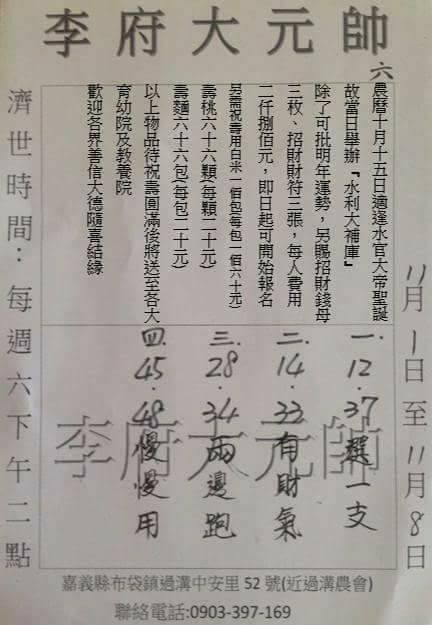 李府大元帥
六
農曆十月十五日適逢水官大帝聖誕
故當日舉辦『水利大補庫』
除了可批明年運勢，另賜招財錢母
三枚、招財財符三張，每人費用
二仟捌佰元，即日起可開始報名
另需祝壽用白米一佰包(每包一佰六十元)
壽桃六十六顆(每顆二十元)
壽麵六十六包(每包二十元)
以上物品待祝壽圓滿後將送至各大
育幼院及教養院
歡迎各界善信大德隨喜結緣
11月1日至11月8日
一.12.37選一支
二.14.33有財氣
三.28.34兩邊跑
四.45.48慢慢用
李府大元帥
濟世時間：每週六下午二點
嘉義縣布袋鎮過溝中安里 52 號(近過溝農會)
聯絡電話:0903-397-169